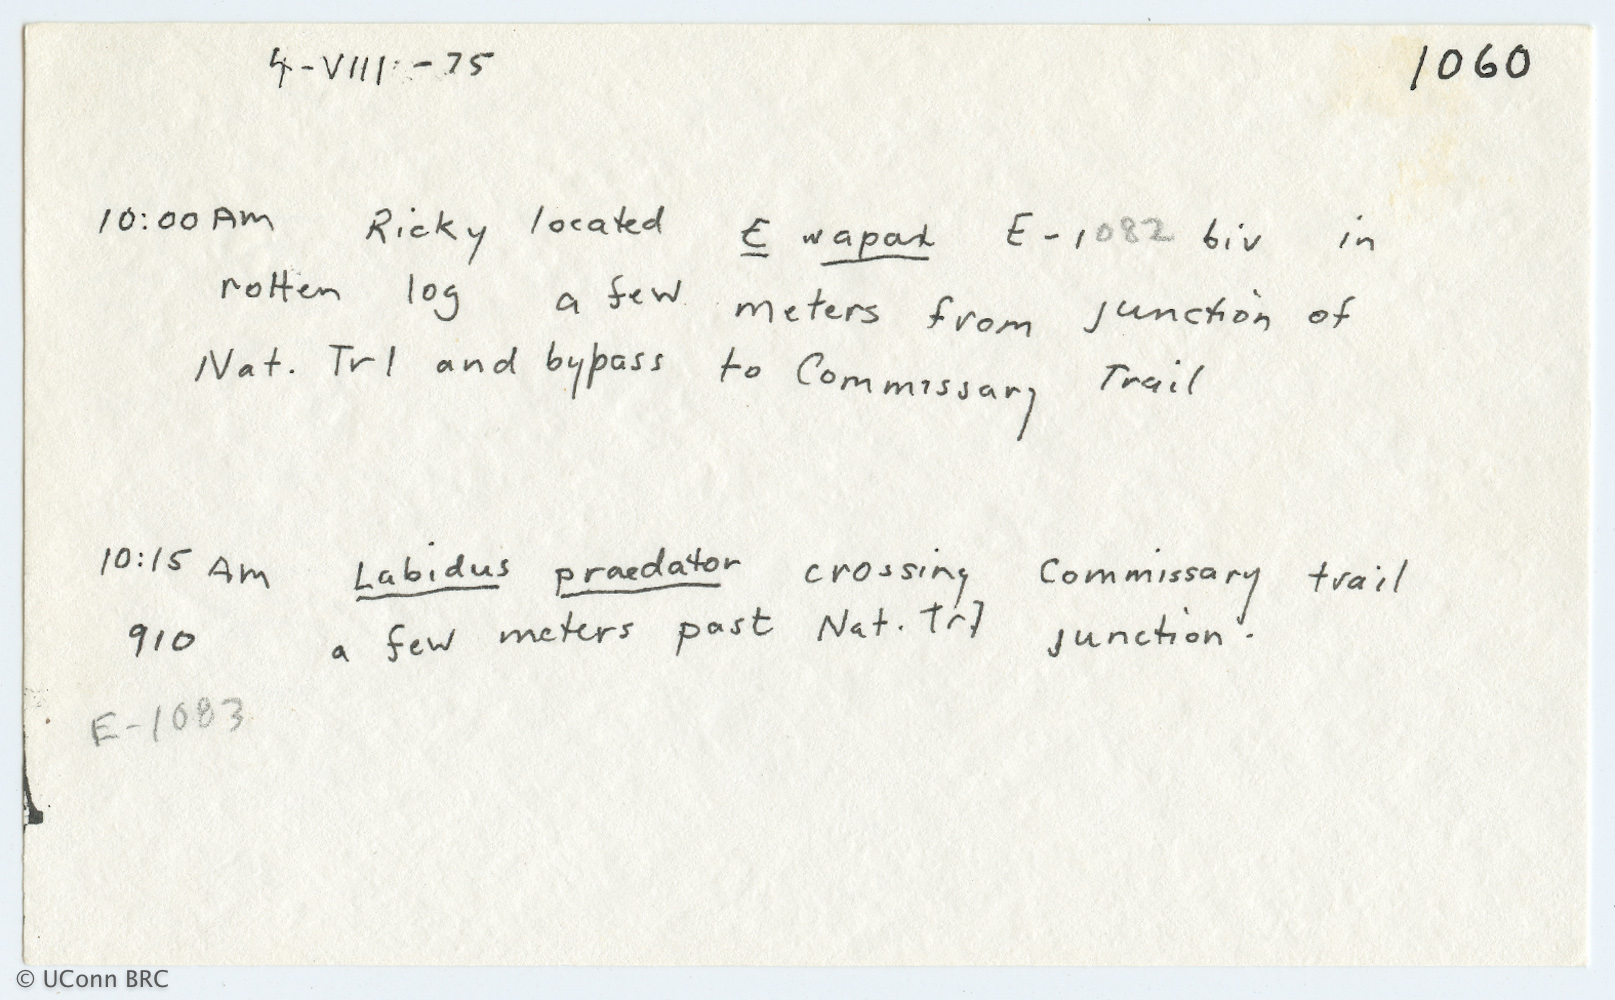 4-VIII-75 1060
10:00 Am Ricky located E wapax E-1082 biv in
rotten log a few meters from junction of
Nat. Trl and bypass to Commissary Trail
10:15 Am Labidus praedator crossing Commissary trail
910 a few meters past Nat. Trl junction.
E-1083
© UConn BRC